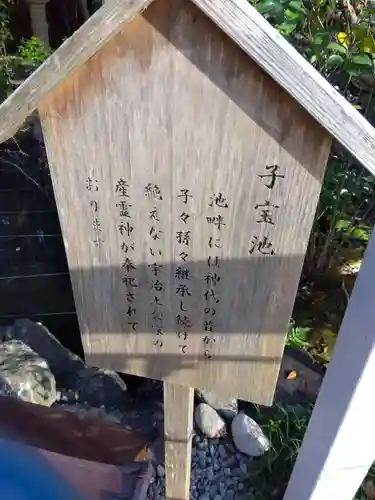 子宝池
池畔には神代の昔から
子々孫々継承し続けて
絶えない宇治土公家の
産霊神が奉祀されて
むります